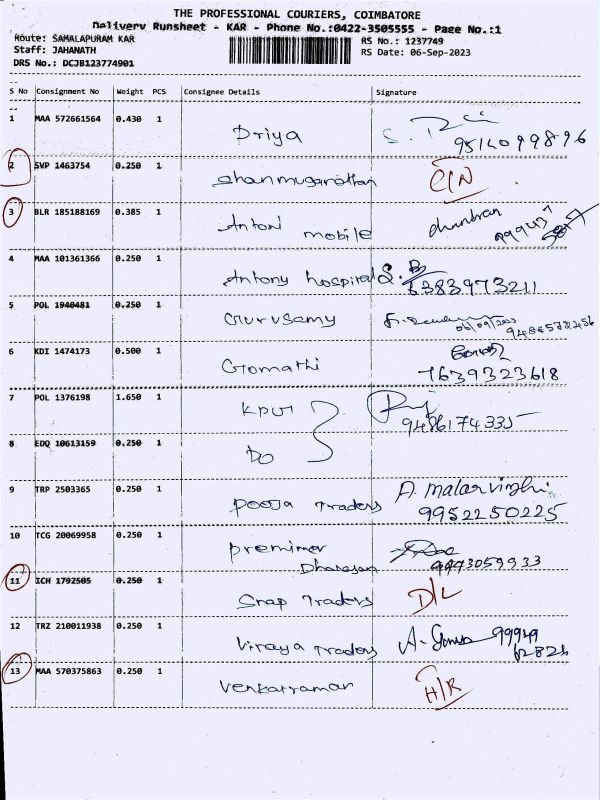 THE PROFESSIONAL COURIERS, COIMBATORE
Delivery Runsheet - KAR - Phone No.:0422-3505555 - Page No.:1
Route: SAMALAPURAM KAR
RS No.: 1237749
Staff: JAHANATH
RS Date: 06-Sep-2023
DRS No.: DCJB123774901
S No Consignment No Weight PCS Consignee Details Signature
1 MAA 572661564 0.430 1 Priya S.
9514099896
2 SVP 1463754 0.250 1 Shanmuganathan
3 BLR 185188169 0.385 1 Antoni mobile
4 MAA 101361366 0.250 1 Antony hospital S.
6383973211
5 POL 1940481 0.250 1 Gurusamy
06/09/2023
6 KDI 1474173 0.500 1 Gomathi கோமதி
7639323618
7 POL 1376198 1.650 1 KPUT
9486174335
8 EDQ 10613159 0.250 1 DO
9 TRP 2503365 0.250 1 Pooja Traders A. Malarvizhi
9952250225
10 TCG 20069958 0.250 1 premimer
Dharasan 9993059933
11 ICH 1792505 0.250 1 Snap Traders D/L
12 TRZ 210011938 0.250 1 Viraya Traders A- 99949
62824
13 MAA 570375863 0.250 1 Venkatraman H/R